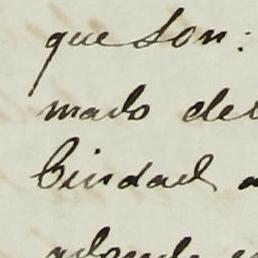 que son:
mado de
Ciudad a